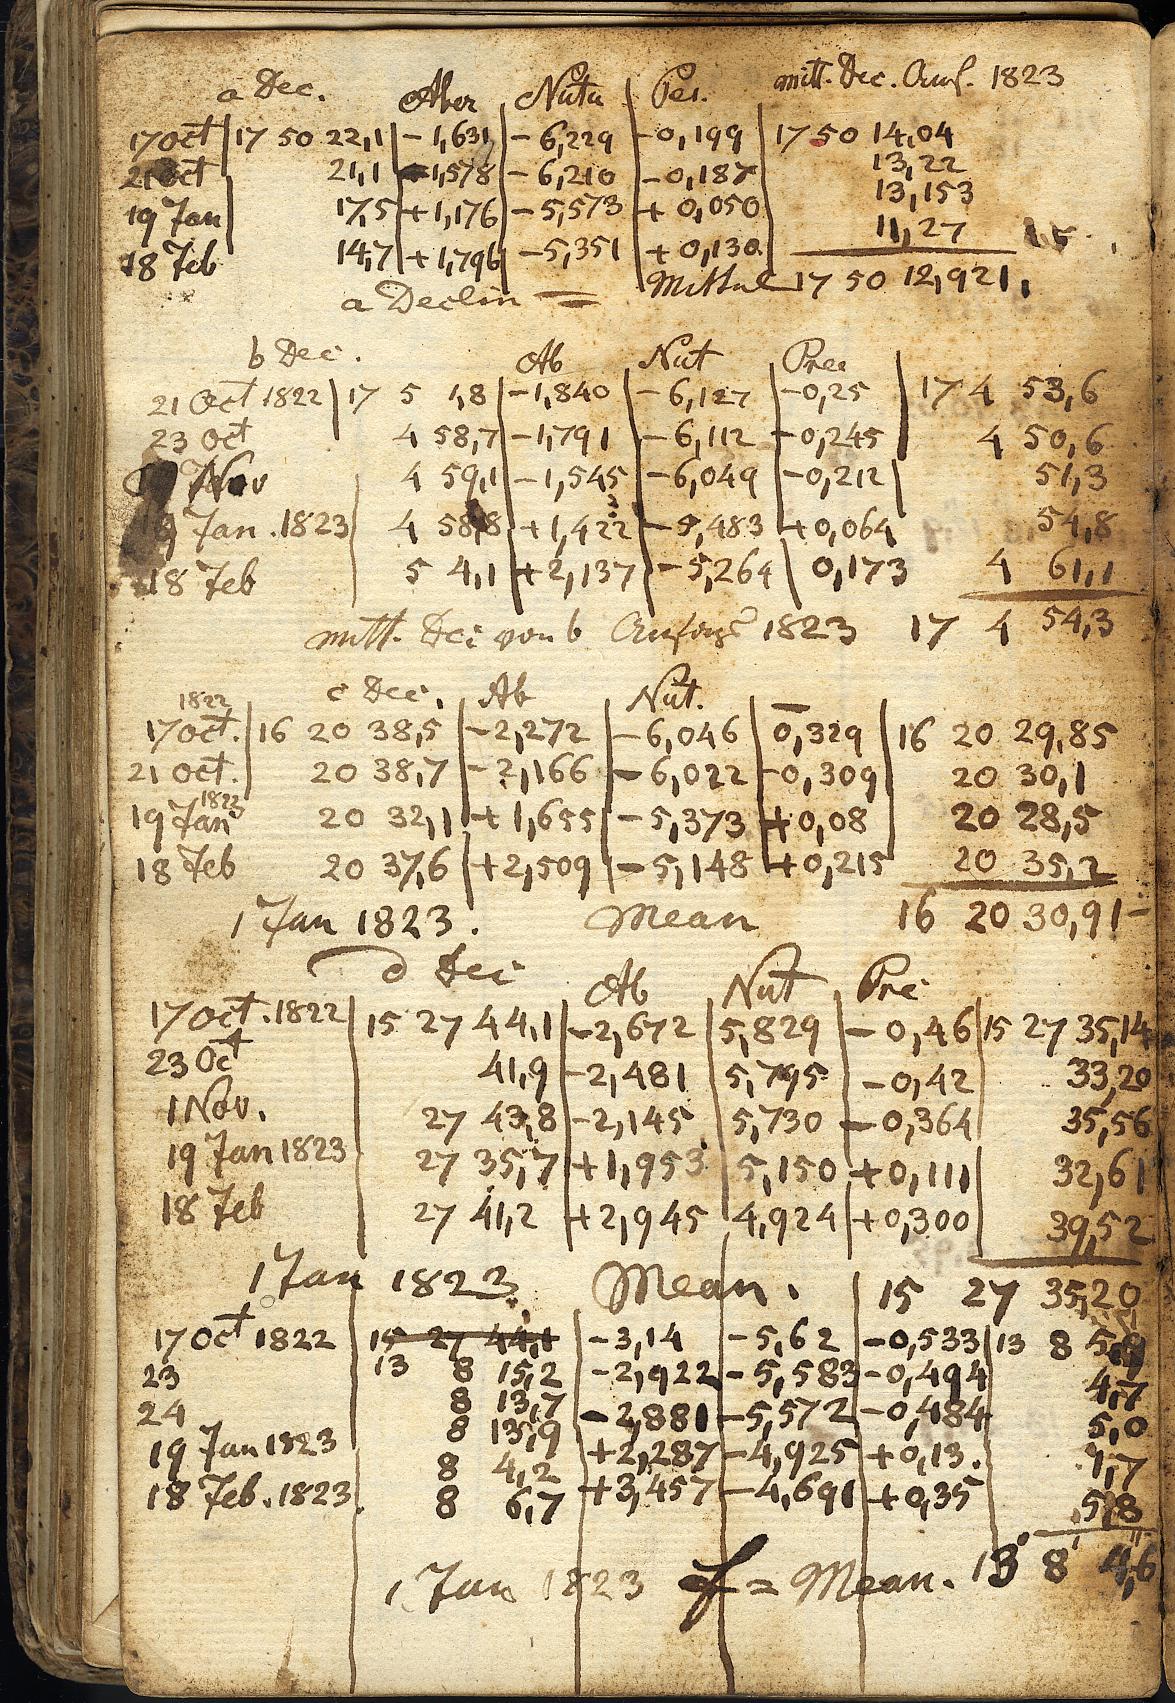 a Dec. Aber Nuta Per. mitt. Dec. Anf. 1823
17 Oct 17 50 22,1 -1,631 -6,229 -0,199 17 50 14,04
21 Oct 21,1 -1,578 -6,210 -0,187 13,22
19 Jan 17,5 +1,176 -5,573 +0,050 13,153
18 Feb 14,7 +1,796 -5,351 +0,130 11,27
a Declin = Mittel 17 50 12,921
b Dec. Ab Nut Prec
21 Oct 1822 17 5 1,8 -1,840 -6,127 -0,25 17 4 53,6
23 Oct 4 58,7 -1,791 -6,112 -0,245 4 50,6
Nov 4 59,1 -1,545 -6,049 -0,212 51,3
19 Jan. 1823 4 58,8 +1,422 -5,483 +0,064 54,8
18 Feb 5 4,1 +2,137 -5,264 0,173 4 61,1
mitt. Dec von b Anfang 1823 17 4 54,3
1822 c Dec. Ab Nut.
17 Oct. 16 20 38,5 -2,272 -6,046 -0,329 16 20 29,85
21 Oct. 20 38,7 -2,166 -6,022 -0,309 20 30,1
19 Jan 1823 20 32,1 +1,655 -5,373 +0,08 20 28,5
18 Feb 20 37,6 +2,509 -5,148 +0,215 20 35,2
1 Jan 1823. Mean 16 20 30,91-
d Dec Ab Nut Prec
17 Oct. 1822 15 27 44,1 -2,672 5,829 -0,46 15 27 35,14
23 Oct 41,9 -2,481 5,795 -0,42 33,20
1 Nov. 27 43,8 -2,145 5,730 -0,364 35,56
19 Jan 1823 27 35,7 +1,953 5,150 +0,111 32,61
18 Feb 27 41,2 +2,945 4,924 +0,300 39,52
1 Jan 1823 Mean. 15 27 35,20
17 Oct 1822 15 27 44,1 -3,14 -5,62 -0,533 13 8 5,9
23 13 8 15,2 -2,922 -5,583 -0,494 4,7
24 8 13,7 -2,881 -5,572 -0,484 5,0
19 Jan 1823 8 13,9 +2,287 -4,925 +0,13. 1,7
8 4,2
18 Feb. 1823 8 6,7 +3,457 -4,691 +0,35 5,8
1 Jan 1823 f = Mean. 13° 8' 4,6"